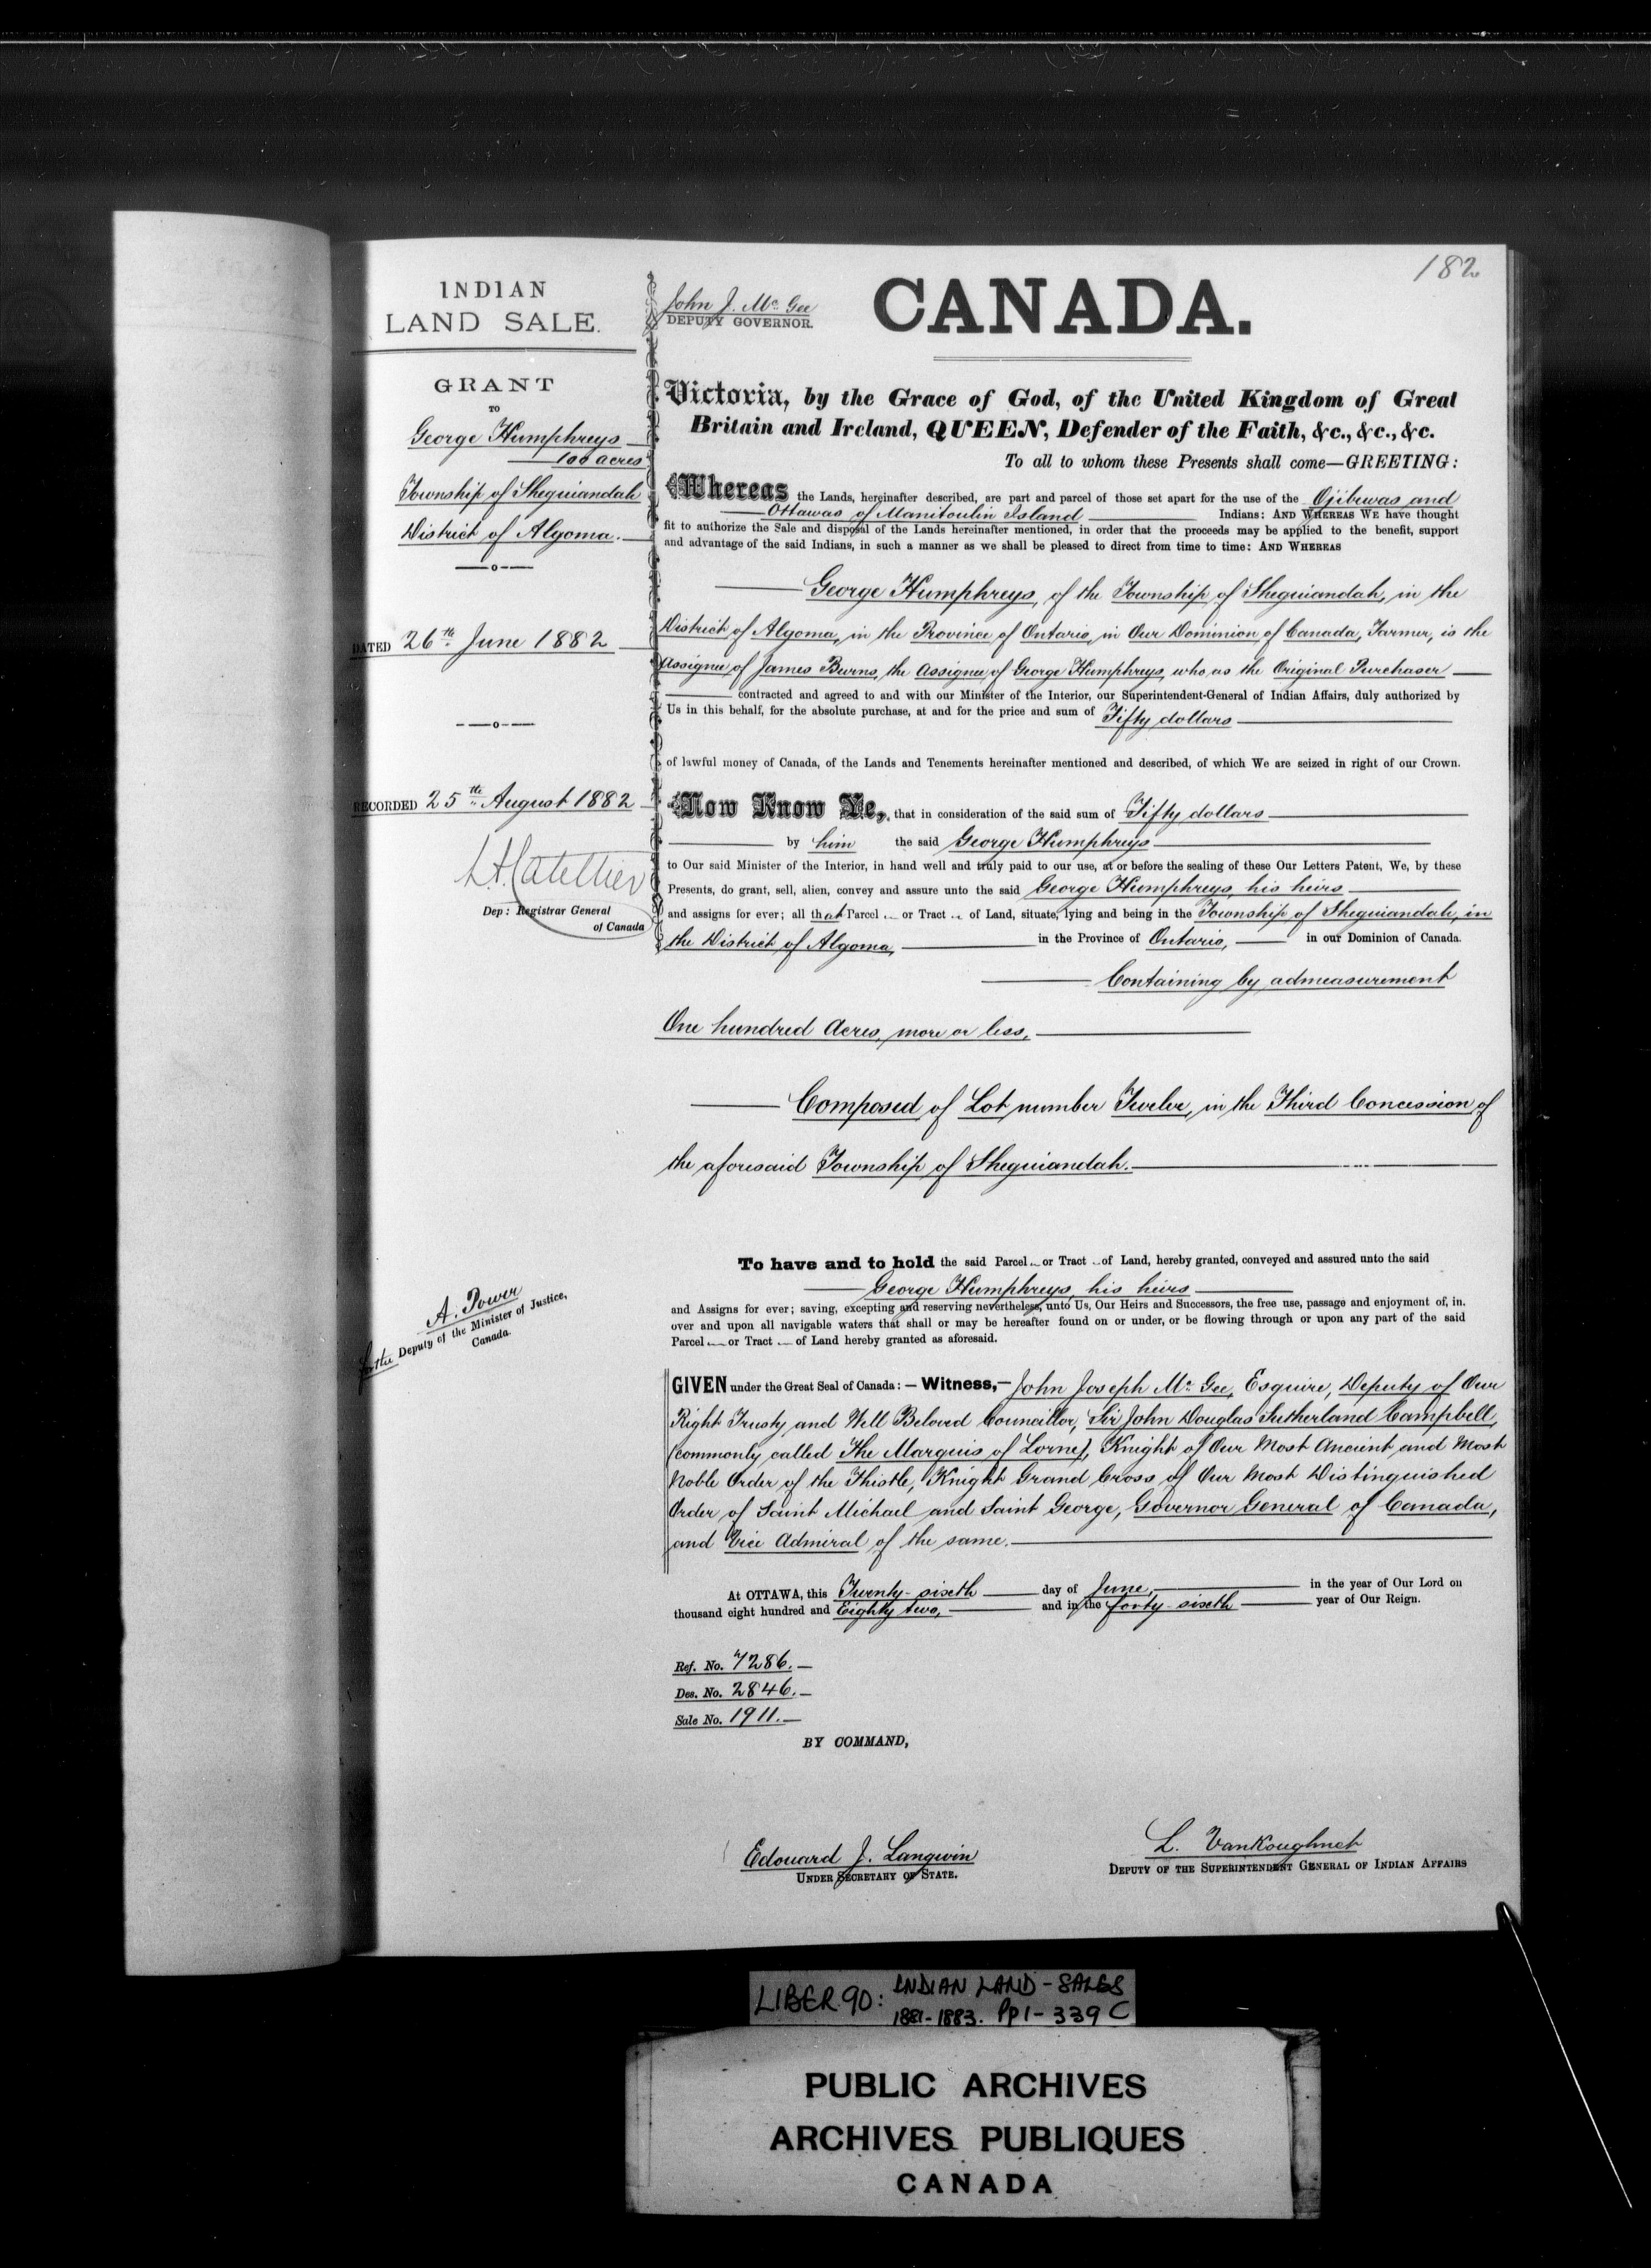 182
INDIAN
LAND SALE.
GRANT
TO
George Humphreys
100 acres
Township of Sheguiandah
District of Algoma.
DATED 26th June 1882
RECORDED 25th August 1882
Dep: Registrar General
of Canada
A. Power
for the Deputy of the Minister of Justice,
Canada.
John J. McGee
DEPUTY GOVERNOR.
CANADA.
Victoria, by the Grace of God, of the United Kingdom of Great
Britain and Ireland, QUEEN, Defender of the Faith, &c., &c., &c.
To all to whom these Presents shall come—GREETING:
Whereas the Lands, hereinafter described, are part and parcel of those set apart for the use of the Ojibewas and
Ottawas of Manitoulin Island Indians: AND WHEREAS WE have thought
fit to authorize the Sale and disposal of the Lands hereinafter mentioned, in order that the proceeds may be applied to the benefit, support
and advantage of the said Indians, in such a manner as we shall be pleased to direct from time to time: AND WHEREAS
George Humphreys, of the Township of Sheguiandah, in the
District of Algoma, in the Province of Ontario, in Our Dominion of Canada, Farmer, is the
Assignee of James Burns, the Assignee of George Humphreys, who as the Original Purchaser
contracted and agreed to and with our Minister of the Interior, our Superintendent-General of Indian Affairs, duly authorized by
Us in this behalf, for the absolute purchase, at and for the price and sum of Fifty dollars
of lawful money of Canada, of the Lands and Tenements hereinafter mentioned and described, of which We are seized in right of our Crown.
Now Know Ye, that in consideration of the said sum of Fifty dollars
by him the said George Humphreys
to Our said Minister of the Interior, in hand well and truly paid to our use, at or before the sealing of these Our Letters Patent, We, by these
Presents, do grant, sell, alien, convey and assure unto the said George Humphreys, his heirs
and assigns for ever; all that Parcel or Tract of Land, situate, lying and being in the Township of Sheguiandah, in
the District of Algoma, in the Province of Ontario, in our Dominion of Canada.
Containing by admeasurement
One hundred Acres, more or less,
Composed of Lot number Twelve, in the Third Concession of
the aforesaid Township of Sheguiandah.
To have and to hold the said Parcel or Tract of Land, hereby granted, conveyed and assured unto the said
George Humphreys, his heirs
and Assigns for ever; saving, excepting and reserving nevertheless, unto Us, Our Heirs and Successors, the free use, passage and enjoyment of, in,
over and upon all navigable waters that shall or may be hereafter found on or under, or be flowing through or upon any part of the said
Parcel or Tract of Land hereby granted as aforesaid.
GIVEN under the Great Seal of Canada: — Witness, — John Joseph McGee, Esquire, Deputy of Our
Right Trusty and Well Beloved Councillor, Sir John Douglas Sutherland Campbell,
(commonly called The Marquis of Lorne), Knight of Our Most Ancient and Most
Noble Order of the Thistle, Knight Grand Cross of Our Most Distinguished
Order of Saint Michael and Saint George, Governor General of Canada,
and Vice Admiral of the same.
At OTTAWA, this Twenty-sixth day of June, in the year of Our Lord on
thousand eight hundred and Eighty two, and in the forty-sixth year of Our Reign.
Ref. No. 7286.
Des. No. 2846.
Sale No. 1911.
BY COMMAND,
Edouard J. Langevin
UNDER SECRETARY OF STATE.
L. VanKoughnet
DEPUTY OF THE SUPERINTENDENT GENERAL OF INDIAN AFFAIRS
LIBER. 90: INDIAN LAND - SALES
1881-1883. Pp 1 - 339 C
PUBLIC ARCHIVES
ARCHIVES PUBLIQUES
CANADA